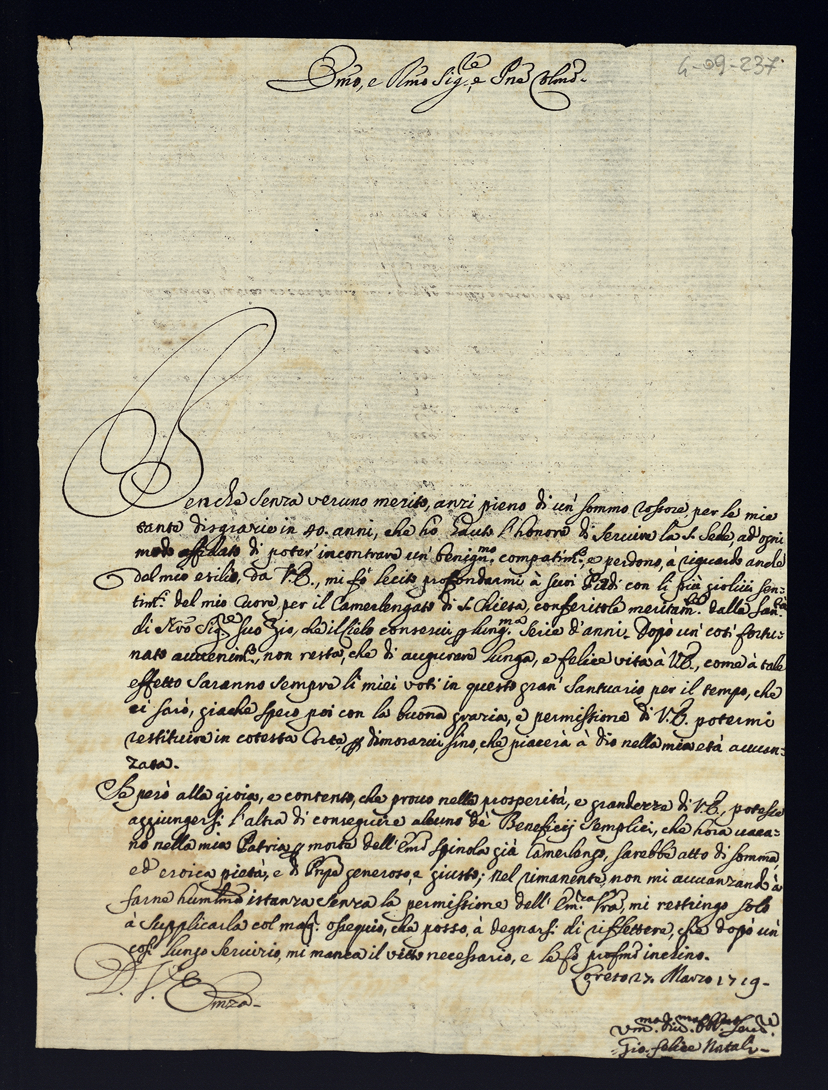 4-09-237
Emo, e Rmo Sig.re, e Pne Colmo.
Benche senza veruno merito, anzi pieno di un' sommo rossore per le mie
tante disgrazie in 40. anni, che hò havuto l'honore di servire la S. Sede ad' ogni
modo affidato di poter' incontrare un' benign.mo compatim.to e perdono, à riguardo anche
dal mio esilio, da V.E., mi fò lecito profondarmi à suoi Piedi con li più giolivi sen-
tim.ti del mio Cuore, per il Camerlengato di S. Chiesa, conferitole meritam.te dalla San.tà
di Nro Sig.re suo Zio, che il Cielo conservi p lung.ma serie d'anni. Dopò un' così fortu-
nato avvenim.to, non resta, che di augurare lunga, e felice vita à V.E., come à tale
effetto saranno sempre li miei voti in questo gran' Santuario per il tempo, che
ci sarò, giache spero poi con la buona grazia, e permissione di V.E. potermi
restituire in cotesta Corte, p dimorarvi sino, che piacerà à Dio nella mia età avvan-
zata.
Se però alla gioia, e contento, che provo nelle prosperità, e grandezze di V.E., potesse
aggiungersi l'altra di conseguire alcuno dè Beneficij semplici, che hora vaca-
no nella mia Patria p morte dell' Emo Spinola già Camerlengo, sarebbe atto di somma
ed' eroica pietà, e di Prnpe generoso, e giusto; nel rimanente non mi avvanzando à
farne humilmo istanza senza la permissione dell' Em.za Vra, mi restringo solo
à supplicarla col mag.r ossequio, che posso, à degnarsi di riflettere, che dopò un'
così lungo servizio, mi manca il vitto necessario, e le fò profmo inchino.
Loreto 27. Marzo 1719.
D. V. Emza
Um.mo Div.mo Obb.mo Ser.re
Gio. Felice Natali